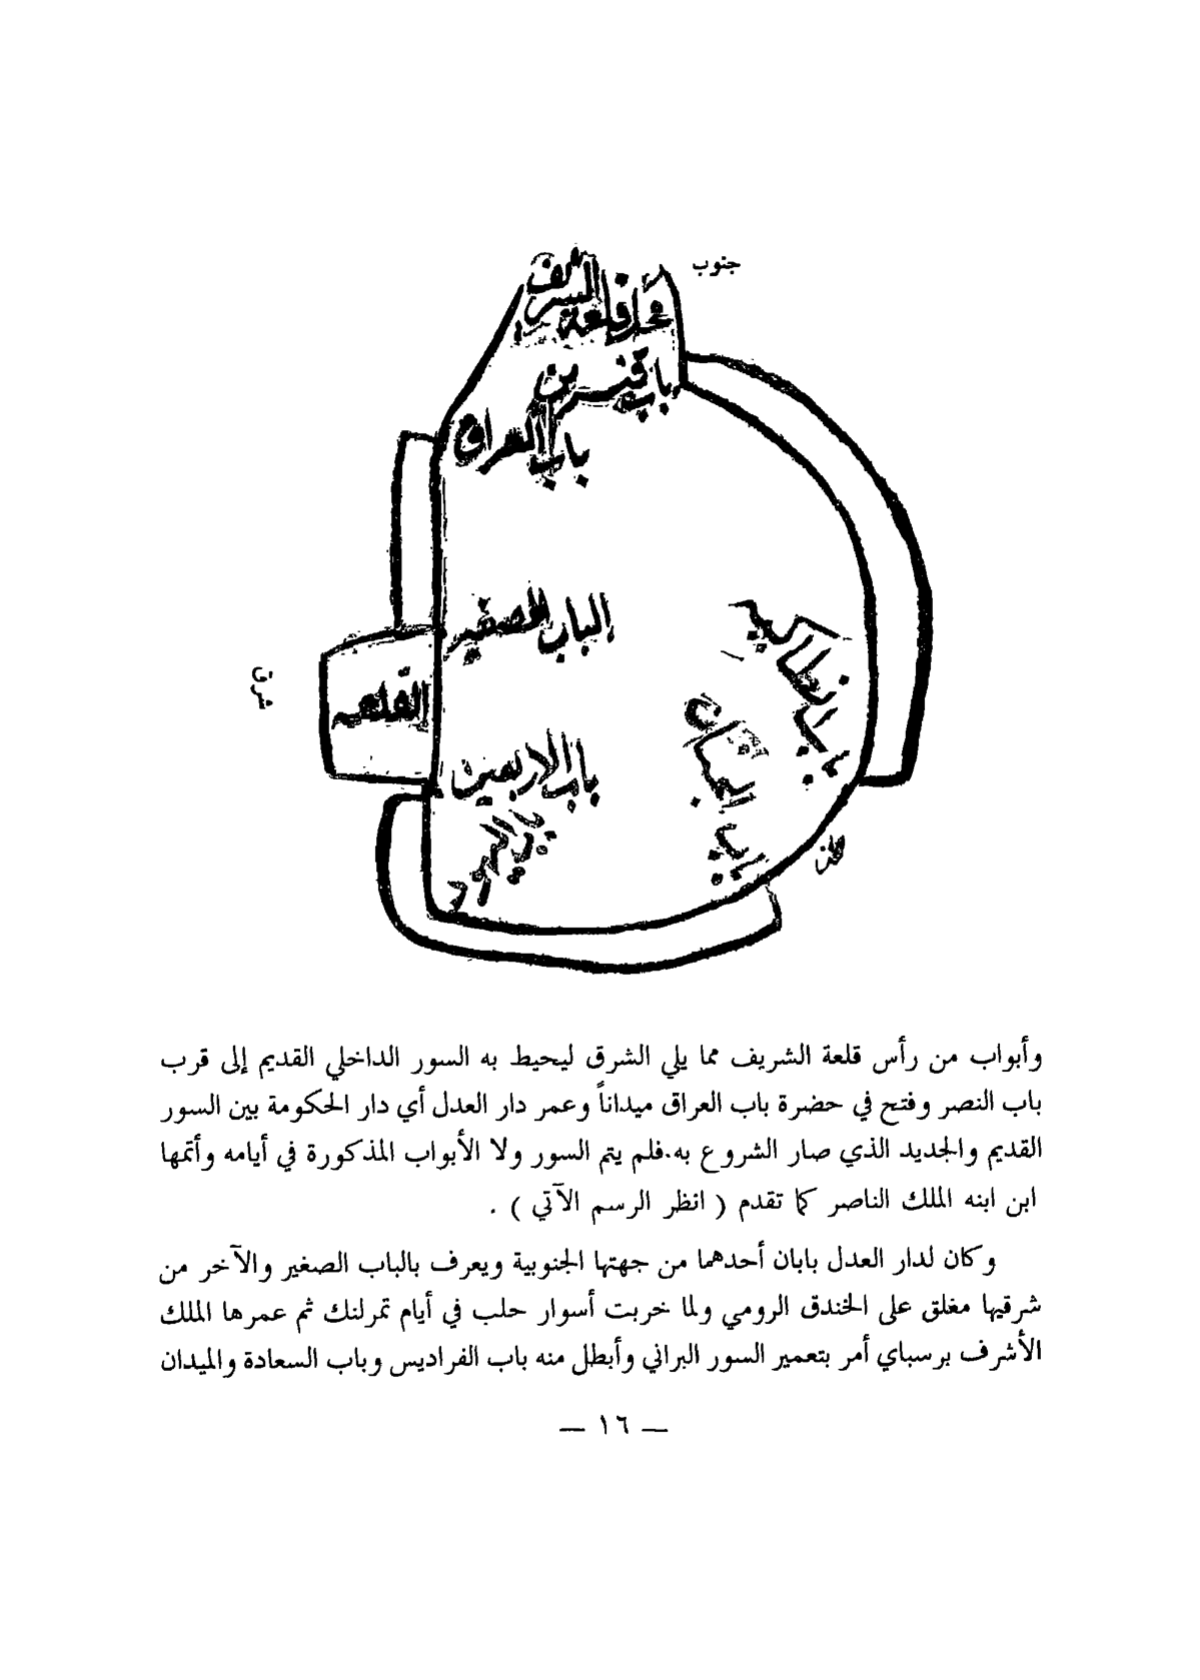 جنوب
محل قلعة الشريف
باب قنسرين
باب العراق
الباب الصغير
باب انطاكية
شرق
القلعة
باب الجنان
باب الاربعين
باب اليهود
وأبواب من رأس قلعة الشريف مما يلي الشرق ليحيط به السور الداخلي القديم إلى قرب
باب النصر وفتح في حضرة باب العراق ميداناً وعمر دار العدل أي دار الحكومة بين السور
القديم والجديد الذي صار الشروع به.فلم يتم السور ولا الأبواب المذكورة في أيامه وأتمها
ابن ابنه الملك الناصر كما تقدم ( انظر الرسم الآتي ) .
وكان لدار العدل بابان أحدهما من جهتها الجنوبية ويعرف بالباب الصغير والآخر من
شرقيها مغلق على الخندق الرومي ولما خربت أسوار حلب في أيام تمرلنك ثم عمرها الملك
الأشرف برسباي أمر بتعمير السور البراني وأبطل منه باب الفراديس وباب السعادة والميدان
— ١٦ —